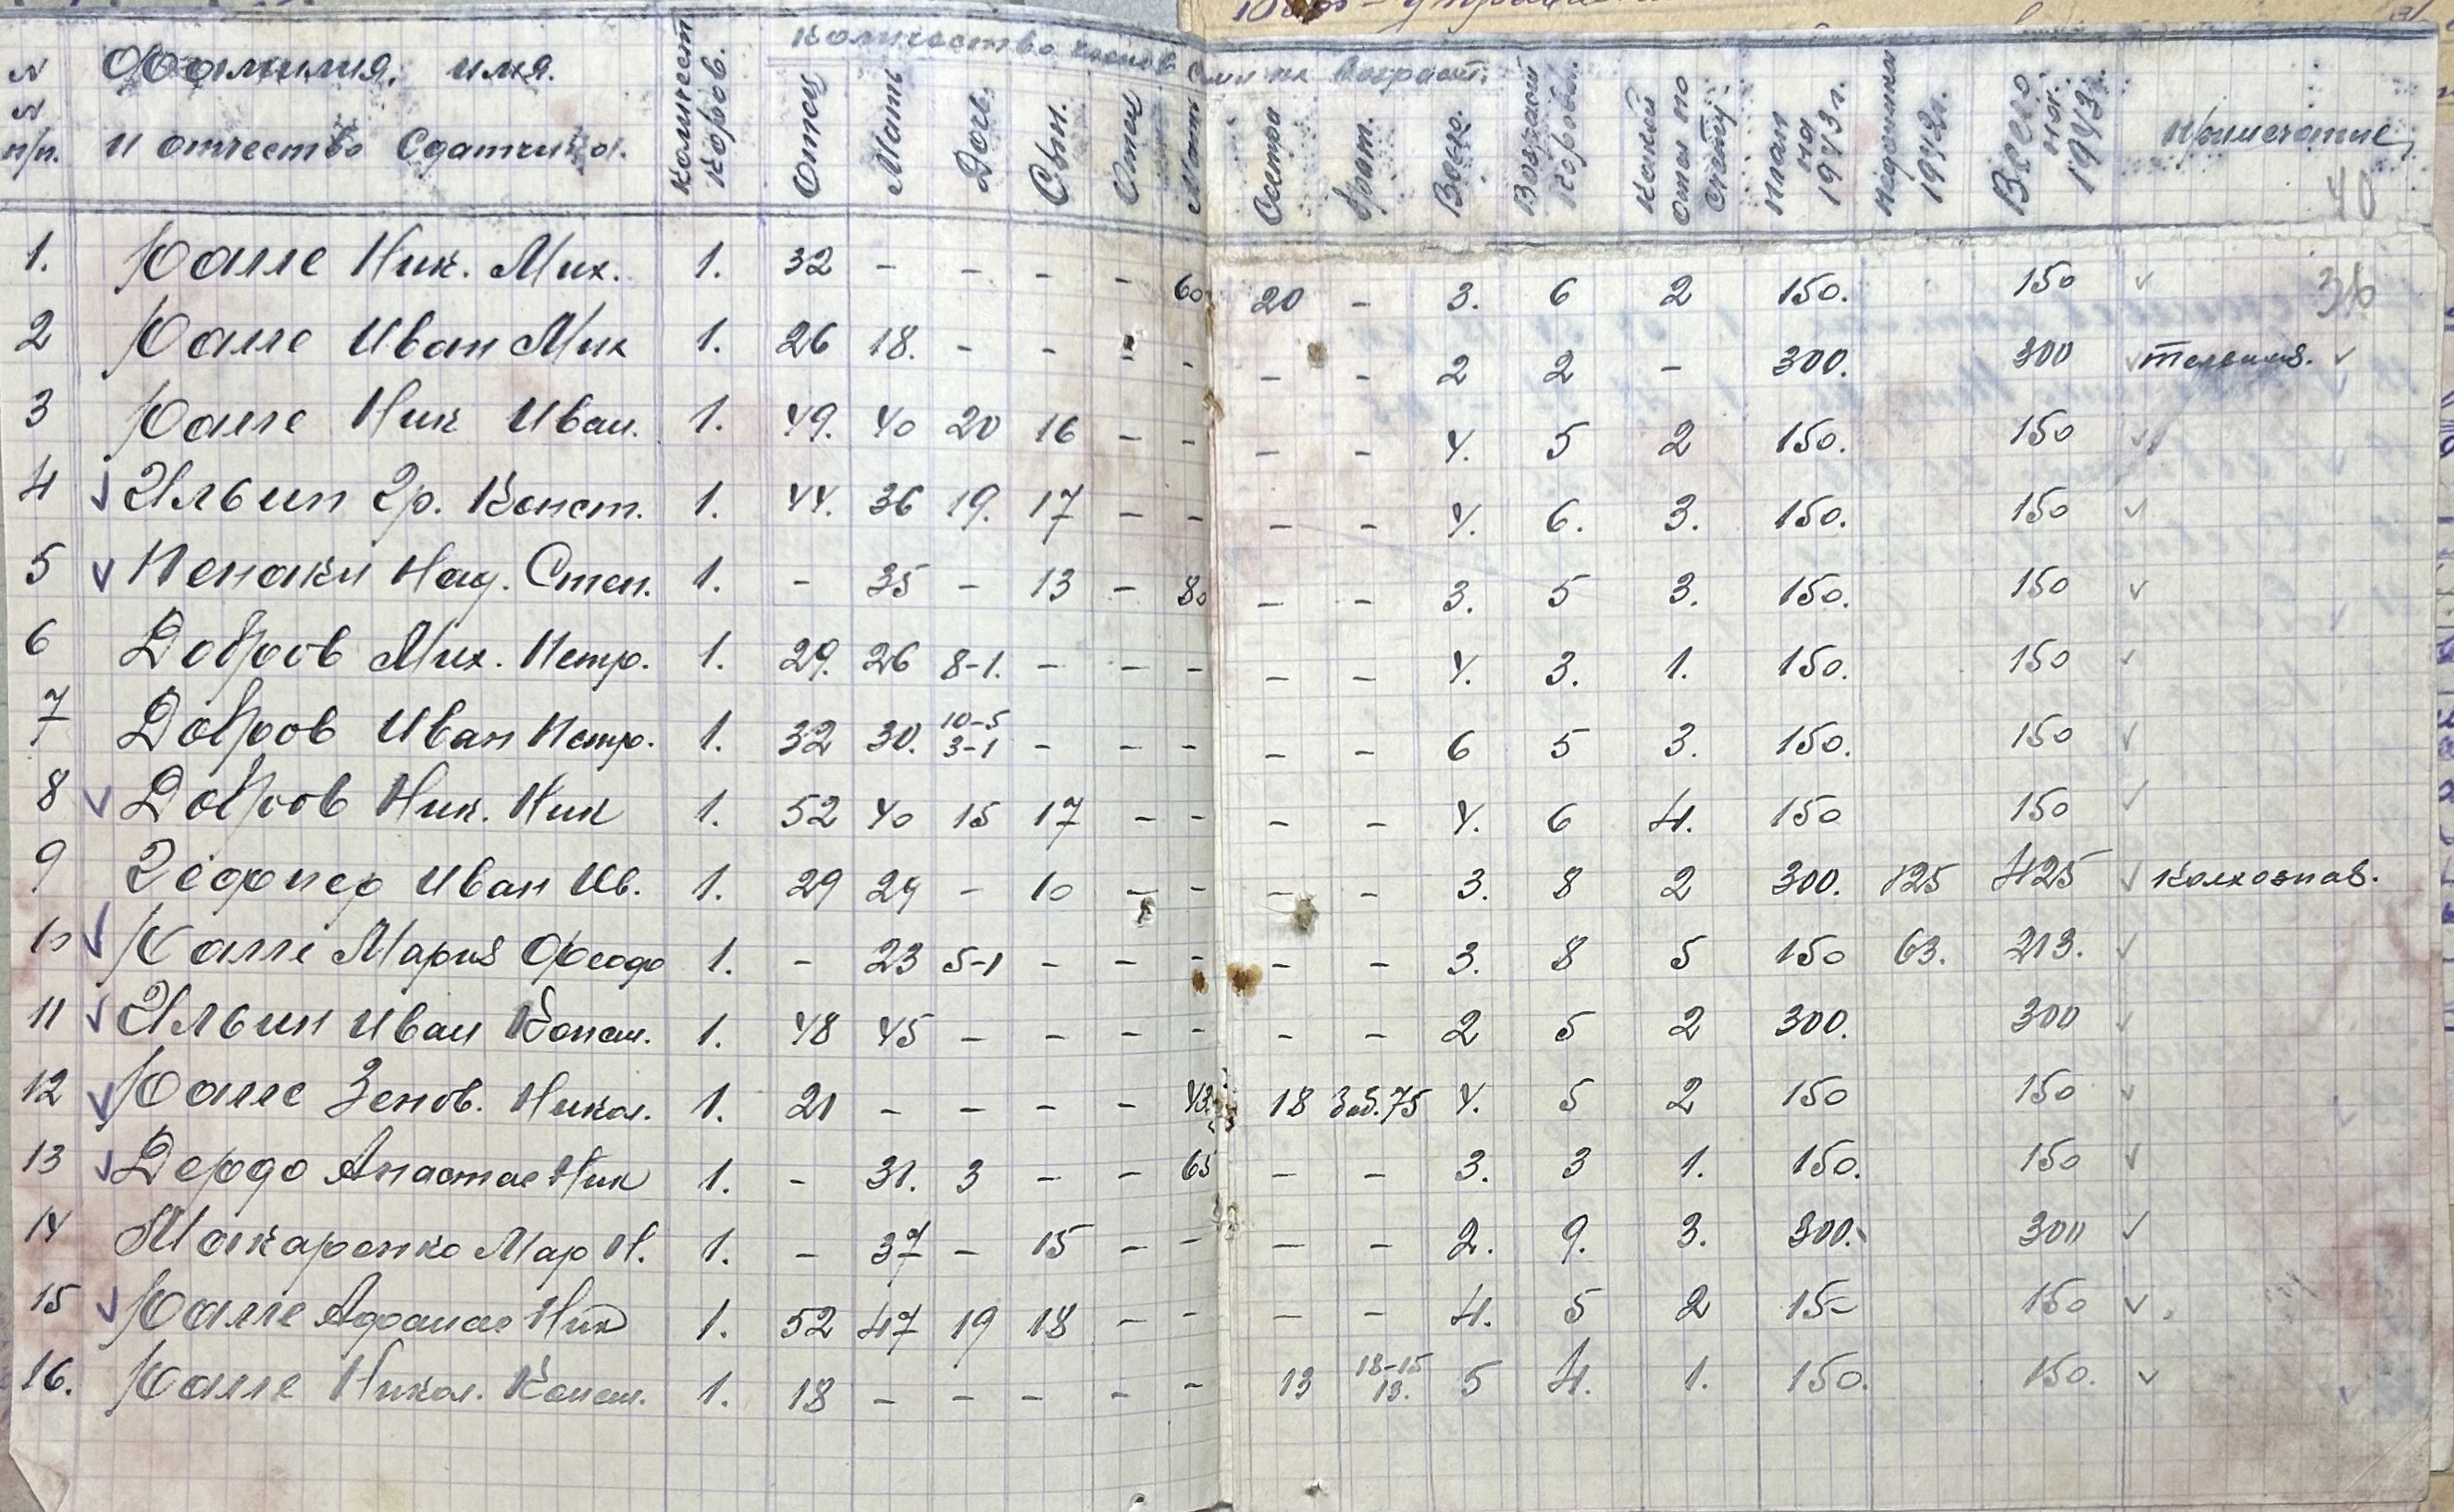 N N п/п. Фамилия, имя и отчество Сдатчика. Количест коров. Количество членов сми их возраст. Отец Мать Дочь Сын. Отец Мать Сестра брат. Всего. Возраст коровы. Какой отел по счету. План на 1943 г. Недоимки 1942 г. Всего на 1943 г. Примечание
40
1. Калле Ник. Мих. 1. 32 - - - - 60 20 - 3. 6 2 150. 150 36
2 Калле Иван Мих 1. 26 18. - - - - - - 2 2 - 300. 300 тельная.
3 Калле Ник Иван. 1. 49. 40 20 16 - - - - 4. 5 2 150. 150
4 Ильин Гр. Конст. 1. 44. 36 19. 17 - - - - 4. 6. 3. 150. 150
5 Пенаки Над. Степ. 1. - 35 - 13 - 80 - - 3. 5 3. 150. 150
6 Добров Мих. Петр. 1. 29. 26 8-1. - - - - - 4. 3. 1. 150. 150
7 Добров Иван Петр. 1. 32 30. 10-5 3-1 - - - - - 6 5 3. 150. 150
8 Добров Ник. Ник 1. 52 40 15 17 - - - - 4. 6 4. 150 150
9 Иван Ив. 1. 29 29 - 10 - - - - 3. 8 2 300. 125 425
10 Калле Мария Феодо 1. - 23 5-1 - - - - - 3. 8 5 150 63. 213.
11 Ильин Иван Конст. 1. 48 45 - - - - - - 2 5 2 300. 300
12 Калле Зенов. Никол. 1. 21 - - - - 43. 18 75 4. 5 2 150 150
13 Дердо Анастас Ник 1. - 31. 3 - - 65 - - 3. 3 1. 150. 150
14 Макаренко Мар Н. 1. - 37 - 15 - - - - 2. 9. 3. 300. 300
15 Калле Афанас Ник 1. 52 47 19 18 - - - - 4. 5 2 15- 150
16. Калле Никол. Конст. 1. 18 - - - - - 13 18-15 13. 5 4. 1. 150. 150.